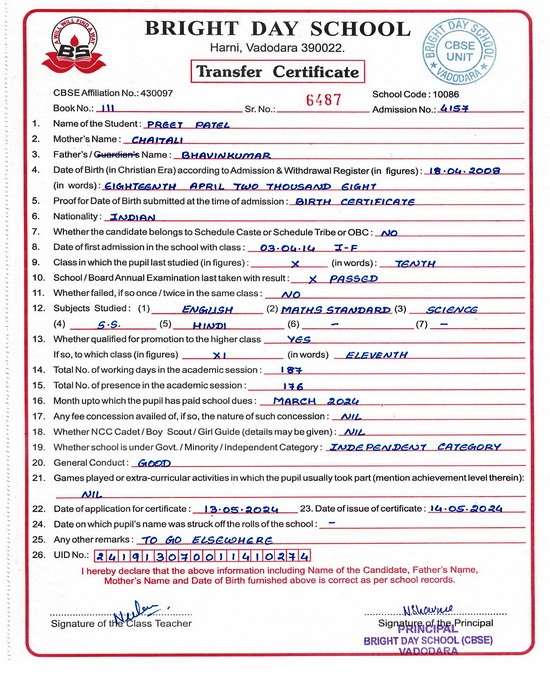 A WILL WILL FIND A WAY
BS
BRIGHT DAY SCHOOL
Harni, Vadodara 390022.
BRIGHT DAY SCHOOL
CBSE
UNIT
VADODARA
Transfer Certificate
CBSE Affiliation No.: 430097 School Code : 10086
Book No.: 111 Sr. No.: 6487 Admission No.: 4157
1. Name of the Student : PREET PATEL
2. Mother's Name : CHAITALI
3. Father's / Guardian's Name : BHAVINKUMAR
4. Date of Birth (in Christian Era) according to Admission & Withdrawal Register (in figures) : 18-04-2008
(in words) : EIGHTEENTH APRIL TWO THOUSAND EIGHT
5. Proof for Date of Birth submitted at the time of admission : BIRTH CERTIFICATE
6. Nationality : INDIAN
7. Whether the candidate belongs to Schedule Caste or Schedule Tribe or OBC : NO
8. Date of first admission in the school with class : 03-04-14 I-F
9. Class in which the pupil last studied (in figures) : X (in words) : TENTH
10. School / Board Annual Examination last taken with result : X PASSED
11. Whether failed, if so once / twice in the same class : NO
12. Subjects Studied : (1) ENGLISH (2) MATHS STANDARD (3) SCIENCE
(4) S.S. (5) HINDI (6) – (7) –
13. Whether qualified for promotion to the higher class YES
If so, to which class (in figures) XI (in words) ELEVENTH
14. Total No. of working days in the academic session : 187
15. Total No. of presence in the academic session : 176
16. Month upto which the pupil has paid school dues : MARCH 2024
17. Any fee concession availed of, if so, the nature of such concession : NIL
18. Whether NCC Cadet / Boy Scout / Girl Guide (details may be given) : NIL
19. Whether school is under Govt. / Minority / Independent Category : INDEPENDENT CATEGORY
20. General Conduct : GOOD
21. Games played or extra-curricular activities in which the pupil usually took part (mention achievement level therein) :
NIL
22. Date of application for certificate : 13-05-2024 23. Date of issue of certificate : 14-05-2024
24. Date on which pupil's name was struck off the rolls of the school : –
25. Any other remarks : TO GO ELSEWHERE
26. UID No.: 241913070011410274
I hereby declare that the above information including Name of the Candidate, Father's Name,
Mother's Name and Date of Birth furnished above is correct as per school records.
Signature of the Class Teacher Signature of the Principal
PRINCIPAL
BRIGHT DAY SCHOOL (CBSE)
VADODARA